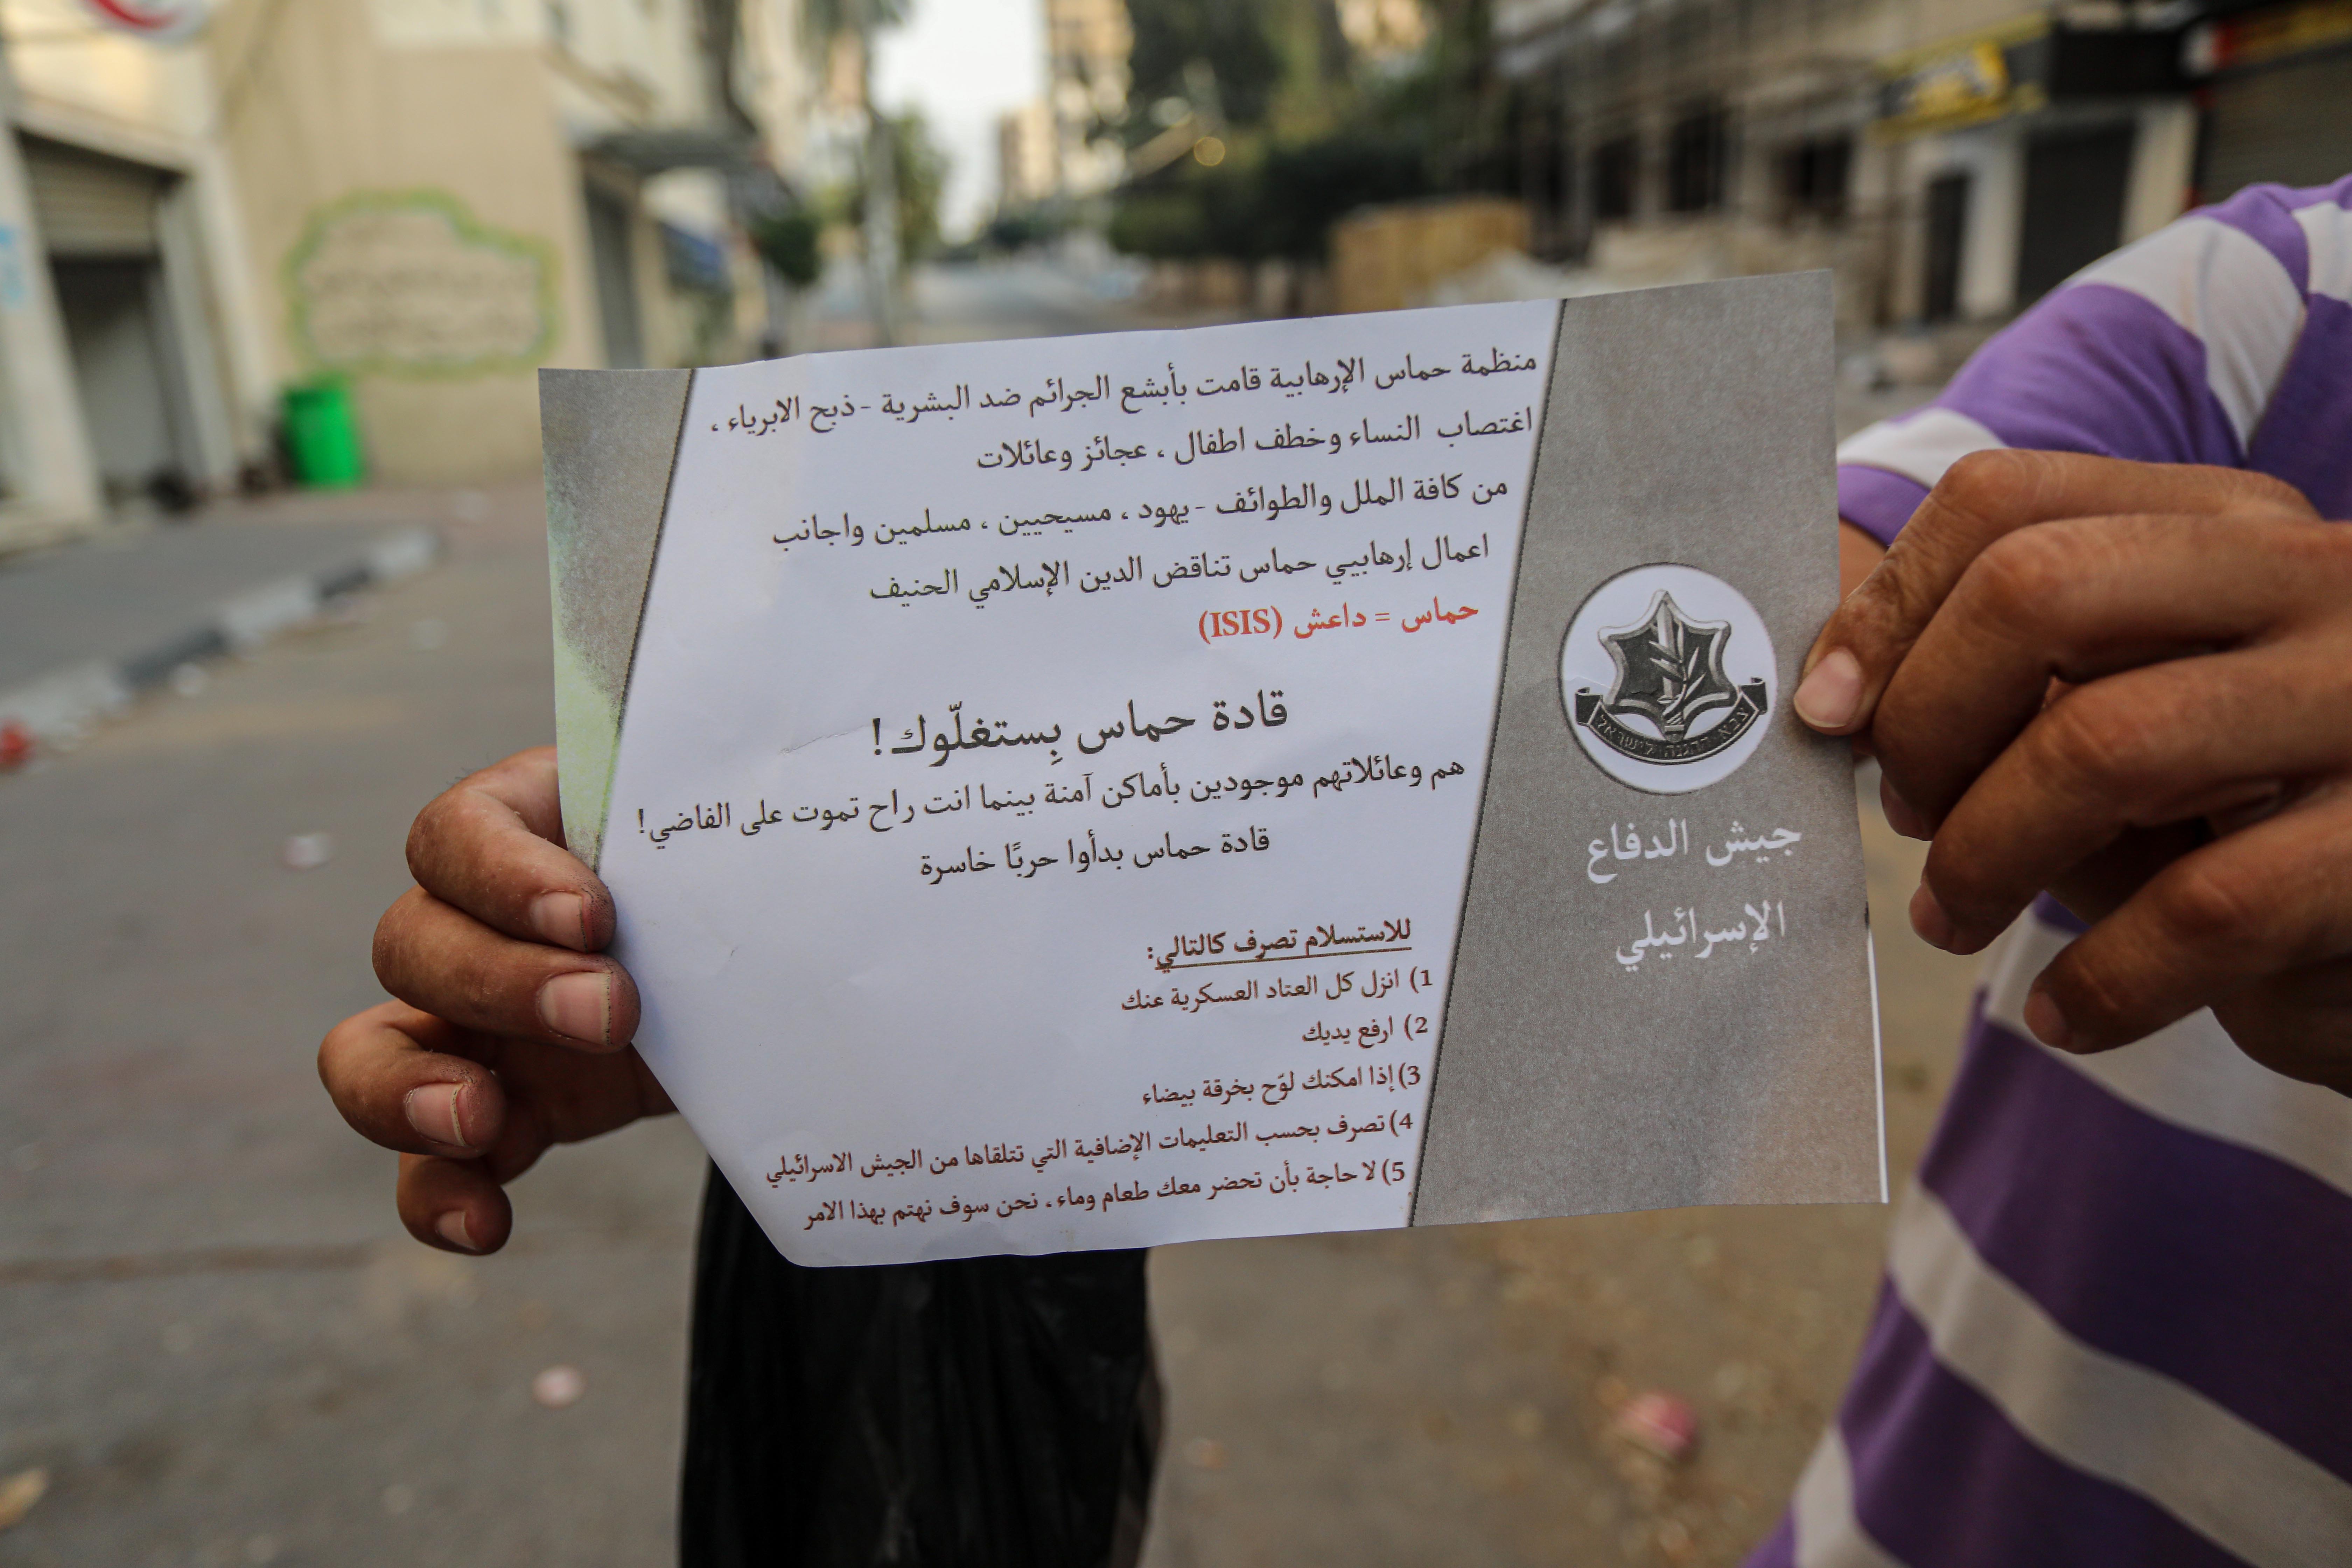 منظمة حماس الإرهابية قامت بأبشع الجرائم ضد البشرية - ذبح الابرياء ،
اغتصاب النساء وخطف اطفال ، عجائز وعائلات
من كافة الملل والطوائف - يهود ، مسيحيين ، مسلمين واجانب
اعمال إرهابيي حماس تناقض الدين الإسلامي الحنيف
حماس = داعش (ISIS)
قادة حماس بِستغلّوك!
هم وعائلاتهم موجودين بأماكن آمنة بينما انت راح تموت على الفاضي!
قادة حماس بدأوا حربًا خاسرة
للاستسلام تصرف كالتالي:
1) انزل كل العتاد العسكرية عنك
2) ارفع يديك
3) إذا امكنك لوّح بخرقة بيضاء
4) تصرف بحسب التعليمات الإضافية التي تتلقاها من الجيش الاسرائيلي
5) لا حاجة بأن تحضر معك طعام وماء ، نحن سوف نهتم بهذا الامر
צבא ההגנה לישראל
جيش الدفاع
الإسرائيلي